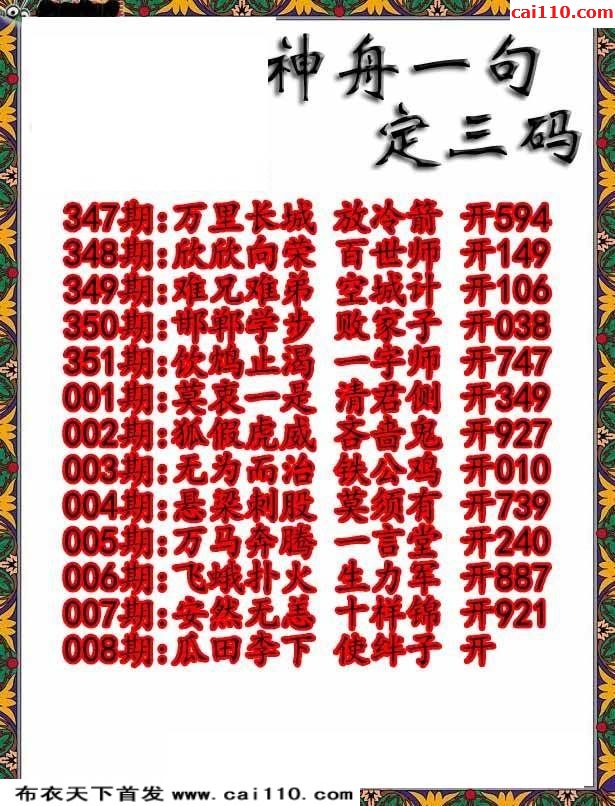 cai110.com
神舟一句
定三码
347期:万里长城 放冷箭 开594
348期:欣欣向荣 百世师 开149
349期:难兄难弟 空城计 开106
350期:邯郸学步 败家子 开038
351期:饮鸩止渴 一字师 开747
001期:莫衷一是 清君侧 开349
002期:狐假虎威 吝啬鬼 开927
003期:无为而治 铁公鸡 开010
004期:悬梁刺股 莫须有 开739
005期:万马奔腾 一言堂 开240
006期:飞蛾扑火 生力军 开887
007期:安然无恙 十样锦 开921
008期:瓜田李下 使绊子 开
布衣天下首发 www.cai110.com